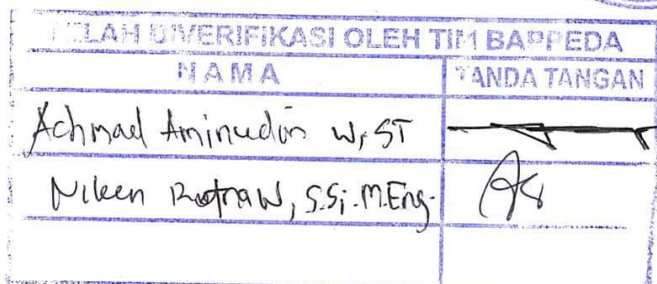 TELAH DIVERIFIKASI OLEH TIM BAPPEDA
NAMA TANDA TANGAN
Achmad Aminudin W, ST
Niken Ratna W, S.Si. M.Eng.